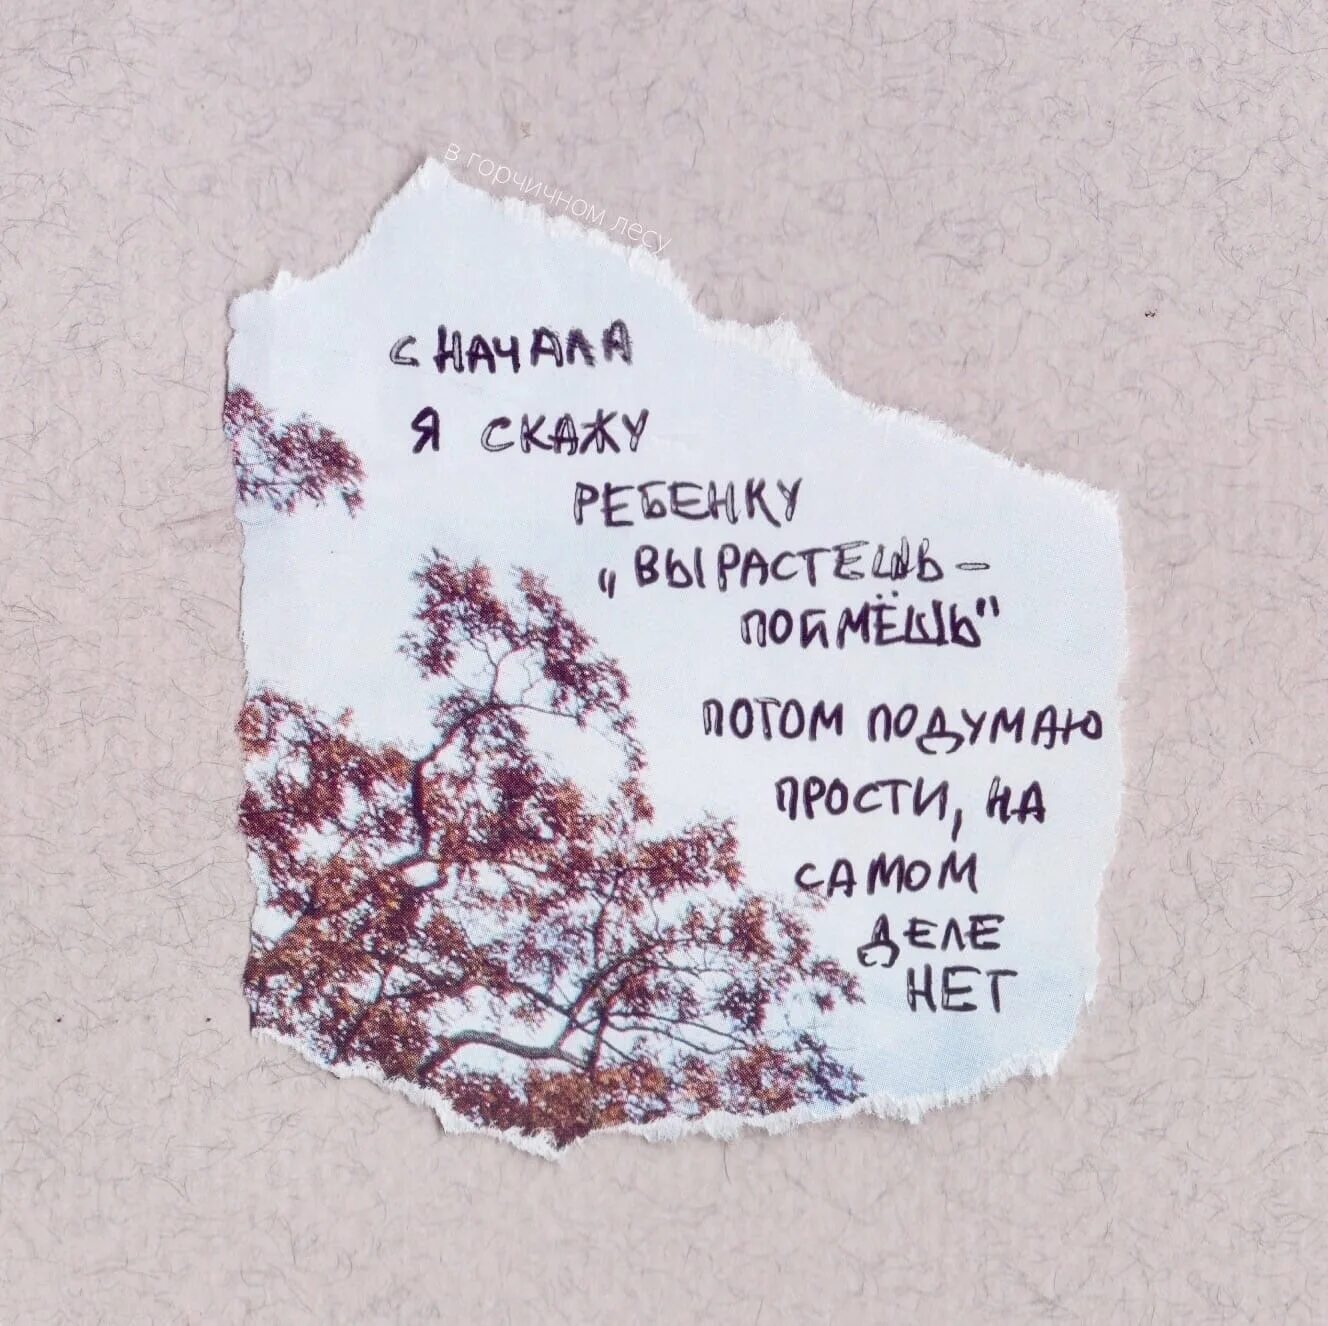 в горчичном лесу
сначала
я скажу
ребенку
„вырастешь –
поймёшь"
потом подумаю
прости, на
самом
деле
нет